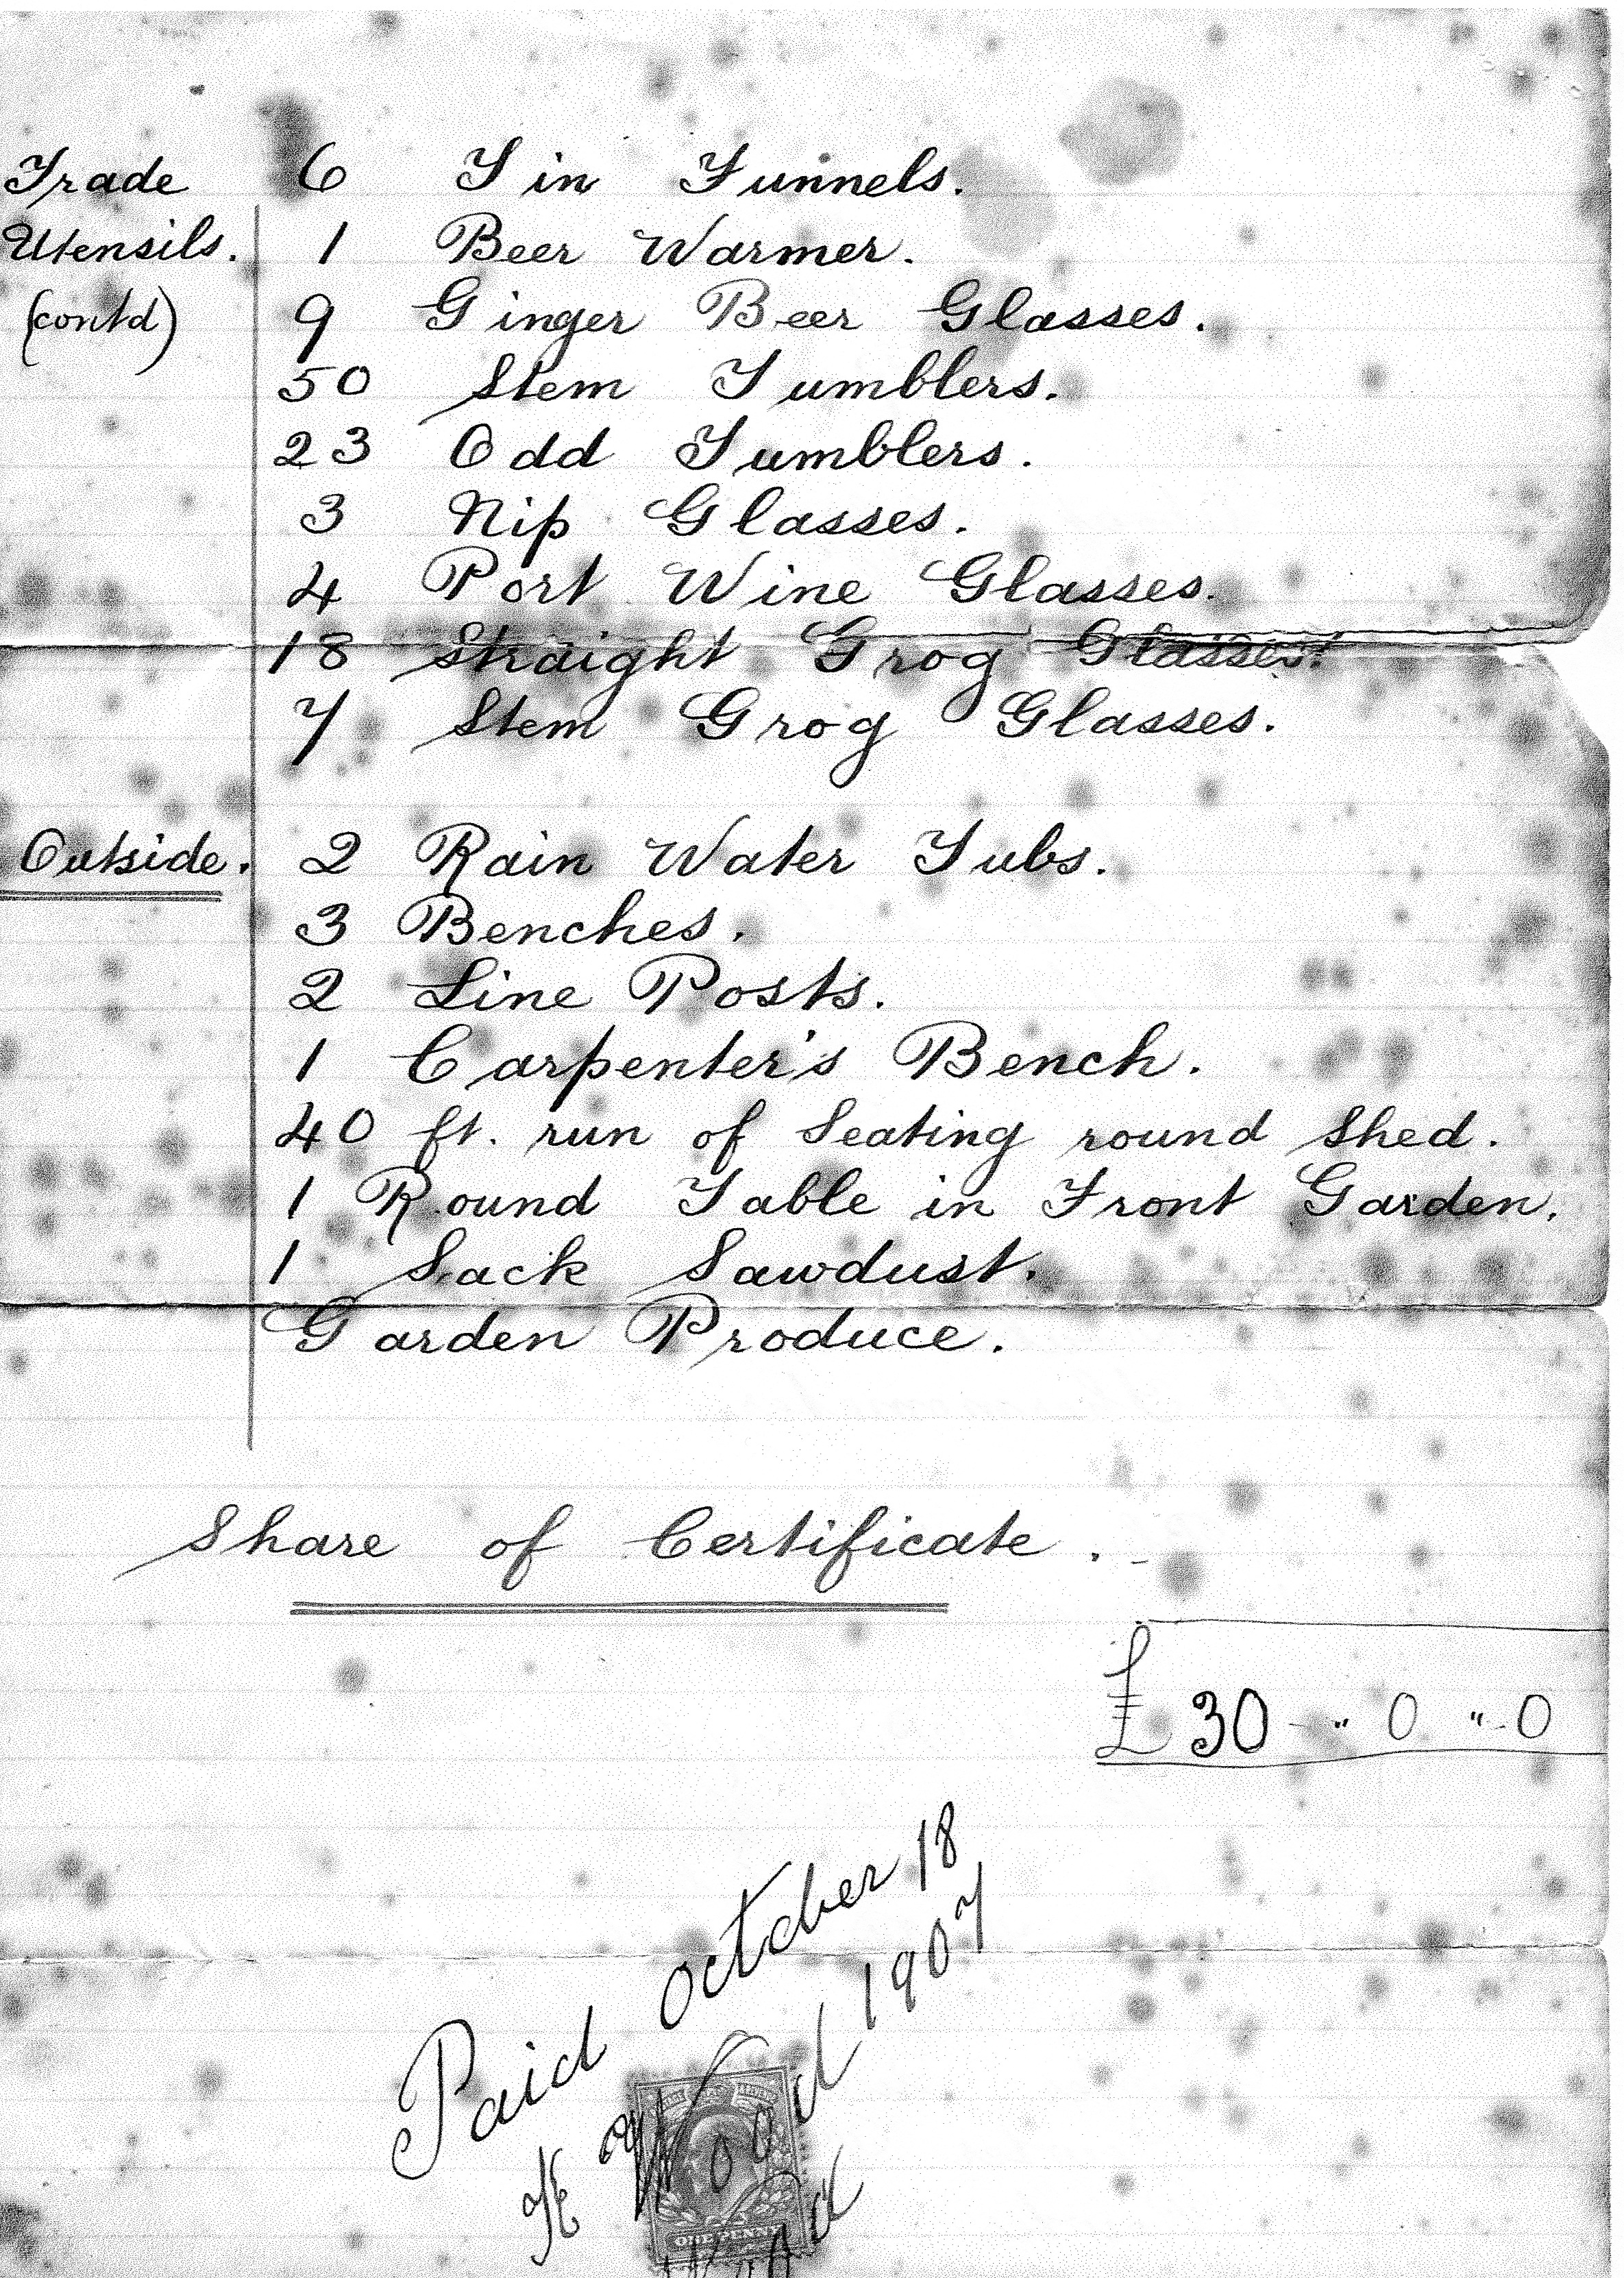 Trade 6 Tin Funnels.
Utensils. 1 Beer Warmer.
(contd) 9 Ginger Beer Glasses.
50 Stem Tumblers.
23 Odd Tumblers.
3 Nip Glasses.
4 Port Wine Glasses.
18 Straight Grog Glasses.
7 Stem Grog Glasses.
Outside. 2 Rain Water Tubs.
3 Benches.
2 Line Posts.
1 Carpenter's Bench.
40 ft. run of Seating round Shed.
1 Round Table in Front Garden.
1 Sack Sawdust.
Garden Produce.
Share of Certificate.
£30 " 0 " 0
Paid October 18
Wood 1907
ONE PENNY